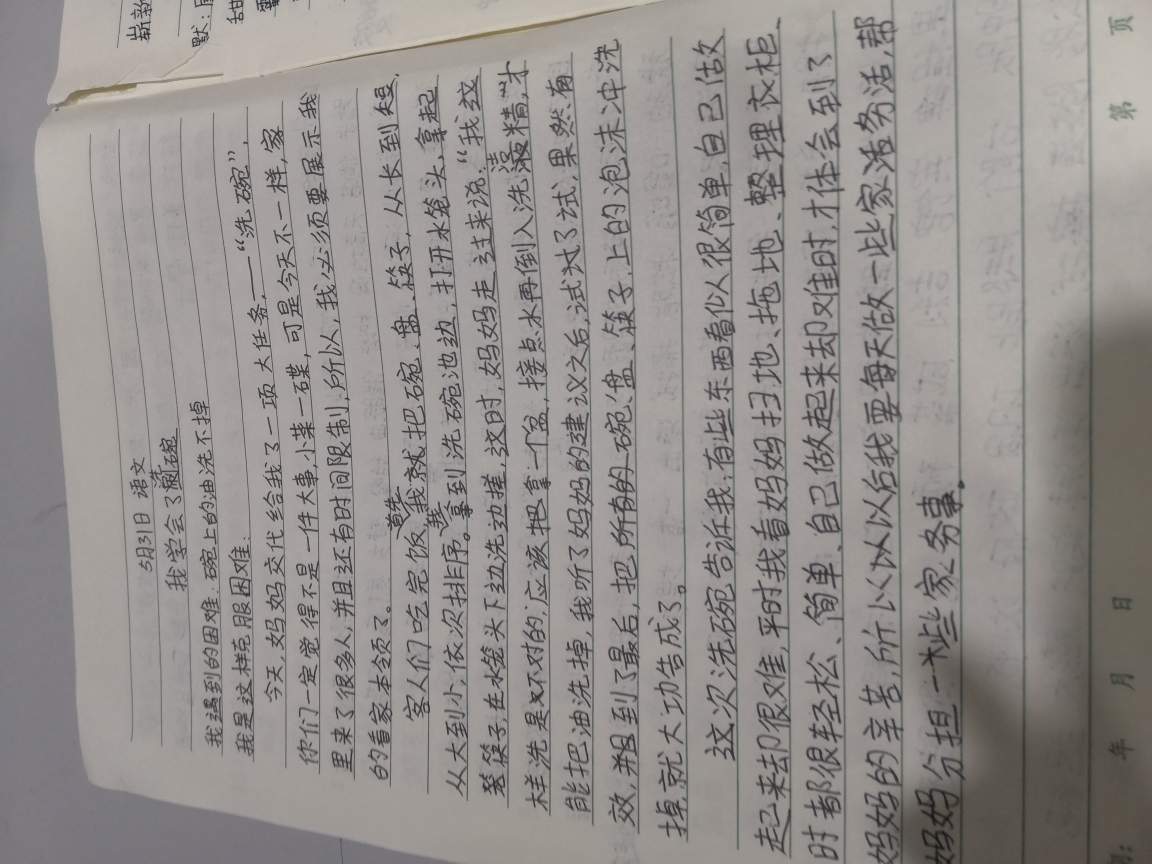 崭新
默:
甜
5月31日 语文
我学会了洗碗
我遇到的困难:碗上的油洗不掉
我是这样克服困难:
今天,妈妈交代给我了一项大任务,——“洗碗”,
你们一定觉得不是一件大事,小菜一碟,可是今天不一样,家
里来了很多人,并且还有时间限制,所以,我必须要展示我
的看家本领了。
客人们吃完饭,首先我就把碗、盘、筷子,从长到短,
从大到小,依次排序。我拿到洗碗池边,打开水笼头,拿起
筷子,在水笼头下边洗边搓,这时,妈妈走过来说:“我这
样洗是不对的,应该把拿一个盆,接点水再倒入洗洁精,才
能把油洗掉,我听了妈妈的建议之后,试试了试,果然有
效,并且到了最后,把所有的碗、盘、筷子,上的泡沫冲洗
掉,就大功告成了。
这次洗碗告诉我:有些东西看似很简单,自己做
起来却很难,平时我看妈妈扫地、拖地、整理衣柜、
时都很轻松、简单、自己做起来却难时,才体会到了
妈妈的辛苦,所以以以后我要每天做一些家活务活,帮
妈妈分担一些家务事。
第 页
年 月 日